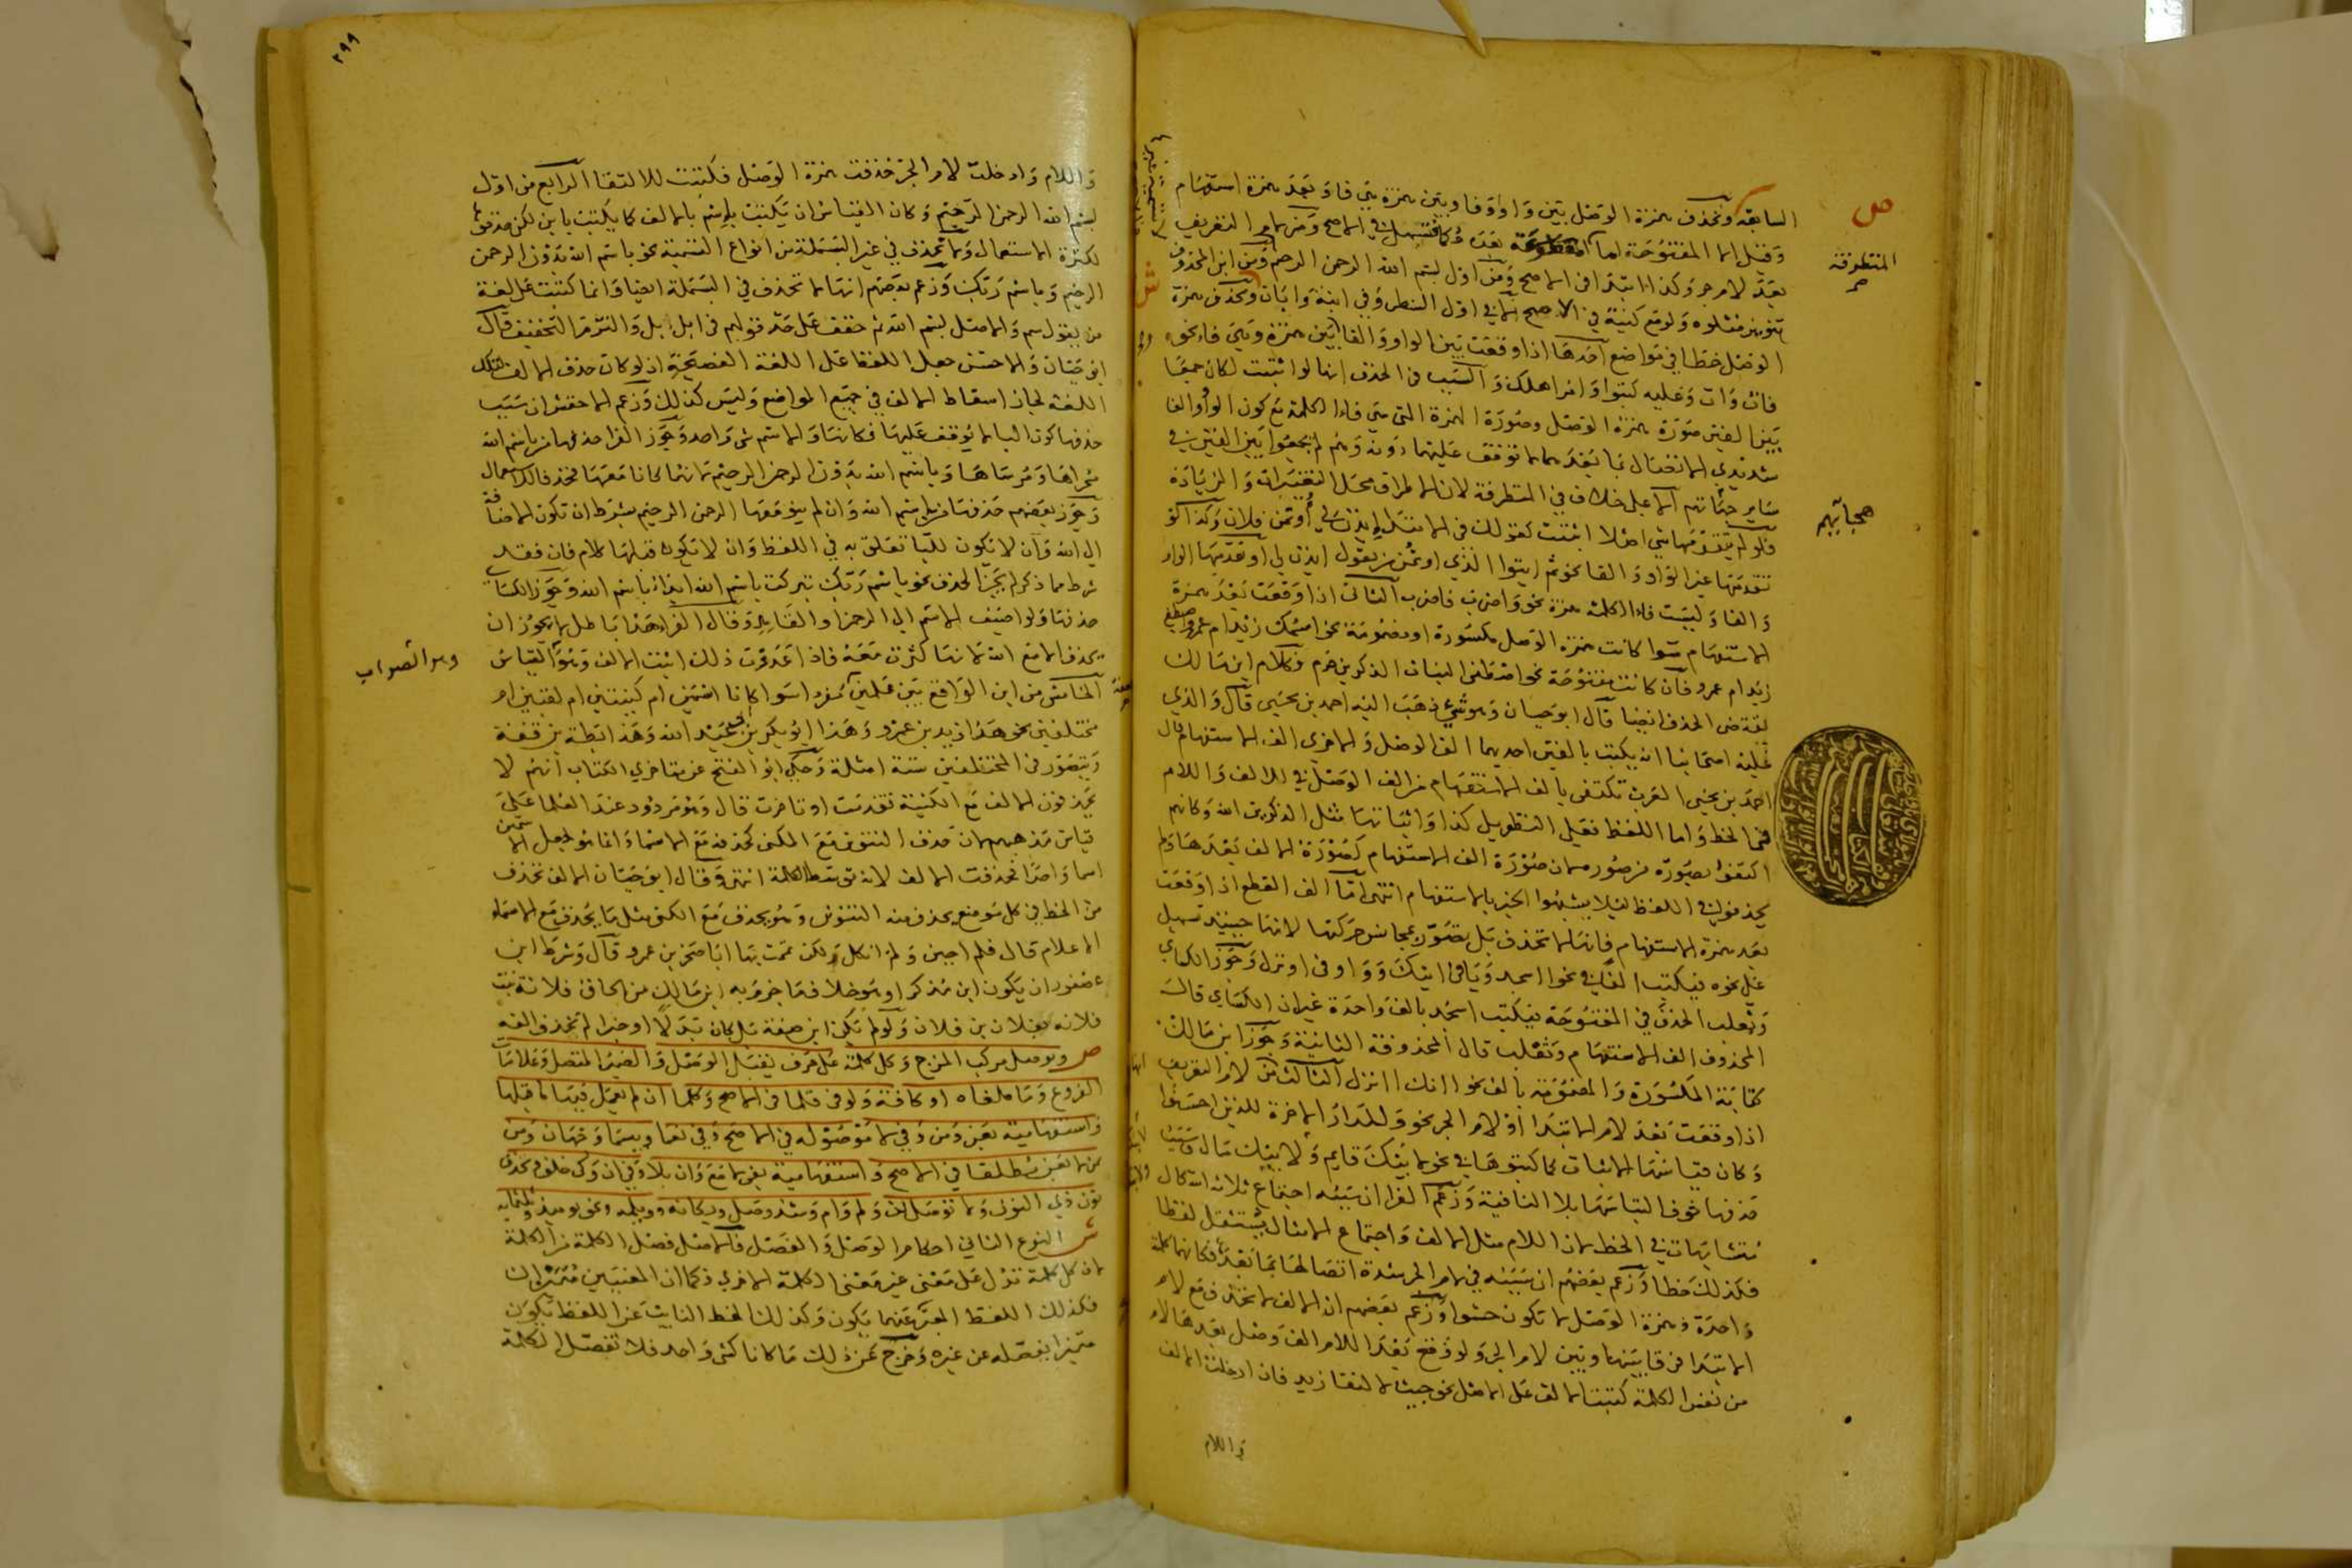 السابقة وتحذف همزة الوصل بين واو أو فا وبين همزة هي فا وبعد همزة استفهام
وقيل الا المفتوحة
بعد لام جر وكذا ابتدا في الاصح ومن اول بسم الله الرحمن الرحيم ومن ابن المحذوف
تنوينه متلوه ولو مع كنية في الاصح لا في اول السطر وفي ابنة وابنان وتحذف همزة
الوصل خطا في مواضع احدها اذا وقعت بين الواو والفا وبين همزة وهي فاء نحو
فات وات وعليه كتبوا وامر اهلك والسبب في الحذف انها لو اثبتت لكان جمعا
بين الفين صورة همزة الوصل وصورة الهمزة التي هي فاء الكلمة مع كون الواو والفا
شديدي الاتصال بما بعدهما لا توقف عليهما دونه وهم لم يجمعوا بين الفين في
ساير هجائهم الا على خلاف في المتطرفة لان الاطراف محل التغييرات والزيادة
فلو لم يتقدمها شي اصلا اثبتت كقولك في الابتدا ايذن لي اوتمن فلان وكذا لو
تقدمها غير الواو والفا نحو ثم ايتوا الذي اوتمن من يقول ايذن لي او تقدمها الواو
والفا وليست فاء الكلمة همزة نحو واضرب فاضرب الثاني اذا وقعت بعد همزة
الاستفهام سوا كانت همزة الوصل مكسورة او مضمومة نحو اسمك زيد ام عمرو
زيد ام عمرو فان كانت مفتوحة نحو اصطفى البنات الذكرين حرم فكلام ابن مالك
يقتضي الحذف ايضا قال ابو حيان وهو شي ذهب اليه احمد بن يحيى قال والذي
عليه اصحابنا انه يكتب بالفين احديهما الف الوصل والاخرى الف الاستفهام قال
احمد بن يحيى العرب تكتفي بالف الاستفهام من الف الوصل في الالف واللام
في الخط واما اللفظ فعلى التطويل كذا واثباتها مثل الذكرين الله وكانهم
اكتفوا بصورة من صور لان صورة الف الاستفهام كصورة الالف بعدها ولم
يحذفوا في اللفظ ليلا يشبهوا الخبر بالاستفهام انتهى اما الف القطع اذا وقعت
بعد همزة الاستفهام فانها لا تحذف بل تصور بمجانس حركتها لانها حينيذ تسهل
على نحوه فيكتب الفا في نحو ااسجد ويا في ايتك وواو في اونزل وجوز الكساي
وثعلب الحذف في المفتوحة فيكتب اسجد بالف واحدة غير ان الكساي قال
المحذوف الف الاستفهام وثعلب قال المحذوفة الثانية وجوز ابن مالك
كتابة المكسورة والمضمومة بالف نحو اانك اانزل الثالث من لام التعريف
اذا وقعت بعد لام الابتدا او لام الجر نحو وللدار الاخرة للذين احسنوا
وكان قياسها الاثبات كما كتبوها في نحو لابنك قايم ولابنك مال وسبب
حذفها خوف التباسها بلا النافية وزعم الفرا ان سببه اجتماع ثلاثة اشكال
متشابهات في الخط لان اللام مثل الالف واجتماع الامثال يستثقل لفظا
فكذلك خطا وزعم بعضهم ان سببه في لام الجر شدة اتصالها بما بعده فكانها كلمة
واحدة وهمزة الوصل لا تكون حشوا وزعم بعضهم ان الالف لا تحذف مع لام
الابتدا فرقا بينها وبين لام الجر ولو وقع بعد اللام الف وصل بعدها لام
من نفس الكلمة كتبت الالف على الاصل نحو جيت لالتقا زيد فان ادخلت الالف
واللام
ص
المتطرفة
هجايهم
٢٩٩
واللام وادخلت لام الجر حذفت همزة الوصل فكتبت للالتقا الرابع من اول
بسم الله الرحمن الرحيم وكان القياس ان يكتب باسم بالالف كما يكتب بابن لكن حذفوها
لكثرة الاستعمال ولا تحذف في غير البسملة من انواع التسمية نحو باسم الله بدون الرحمن
الرحيم وباسم ربك وزعم بعضهم انها لا تحذف في البسملة ايضا وانما كتبت على لغة
من يقول سم والاصل بسم الله ثم خفف على حد قولهم في ابل ابل والتزم التخفيف قال
ابو حيان والاحسن جعل اللفظ على اللغة الفصيحة اذ لو كان حذف الالف لتلك
اللغة لجاز اسقاط الالف في جميع المواضع وليس كذلك وزعم الاخفش ان سبب
حذفها كون البا لا يوقف عليها فكانها والاسم شي واحد وجوز الفرا حذفها من باسم الله
مجراها ومرساها وباسم الله بدون الرحمن الرحيم لانهما كانا معها فحذفا للاستعمال
وجوز بعضهم حذفها من باسم الله وان لم يتم معها الرحمن الرحيم بشرط ان تكون الاضافة
الى الله وان لا يكون للبا تعلق به في اللفظ وان لا تكون قبلها كلام فان فقد
شرط مما ذكر لم يجز الحذف نحو باسم ربك تبركت باسم الله ابدا باسم الله وجوز الكساي
حذفها ولو اضيف الاسم الى الرحمن او القاهر وقال الفرا هذا باطل لا يجوز ان
يحذف الا مع الله لانها كثرت معه فاذا عدوت ذلك اثبت الالف وهو القياس
الخامس من ابن الواقع بين علمين مفرد اسوا كانا اسمين ام كنيتين ام لقبين ام
مختلفين نحو هذا زيد بن عمرو وهذا ابو بكر بن عبد الله وهذا بطة بن قفة
ويتصور في المختلفين ستة امثلة وحكى ابو الفتح عن متاخري الكتاب انهم لا
يحذفون الالف مع الكنية تقدمت او تاخرت قال وهو مردود عند العلما على
قياس مذهبهم لان حذف التنوين مع المكنى كحذفه مع الاسما وانما هو لجعل الاسمين
اسما واحدا فحذفت الالف لانه توسط الكلمة انتهى وقال ابو حيان الالف تحذف
من الخط في كل موضع يحذف منه التنوين وهو يحذف مع الكنى مثل ما يحذف مع الاسماء
الاعلام قال فلم اجبن ولم انكل ولكن يممت بها ابا صخر بن عمرو قال وشرط ابن
عصفور ان يكون ابن مذكرا وهو خلاف ما جزم به ابن مالك من الحاق فلانة بنت
فلانه بفلان بن فلان ولو لم يكن ابن صفة بل كان بدلا او خبرا لم تحذف الفه
ص ويوصل مركب المزج وكل كلمة على حرف يقبل الوصل والضمير المتصل وعلامات
الفروع وما ملغاه او كافة ولو في قلما في الاصح وكلما ان لم يعمل فيها ما قبلها
واستفهامية بعن ومن وفي لا موصوله في الاصح وفي نعما وبيسما وخهان ومن
لا بعن مطلقا في الاصح واستفهامية بفي لا مع وان بلا وفي ان وكي خلف وتحذف
نون ذي النون ولا توصل لن ولم وام وشذ وصل ويكانه وويلمه ونحو يوميذ وثلثمايه
ش النوع الثاني احكام الوصل والفصل فالاصل فصل الكلمة من الكلمة
لان كل كلمة تدل على معنى غير معنى الكلمة الاخرى فكما ان المعنيين متميزان
فكذلك اللفظ المعبر عنهما يكون وكذلك الخط النايب عن اللفظ يكون
متميزا بفصله عن غيره وخرج عن ذلك ما كانا كشي واحد فلا تفصل الكلمة
وهو الصواب